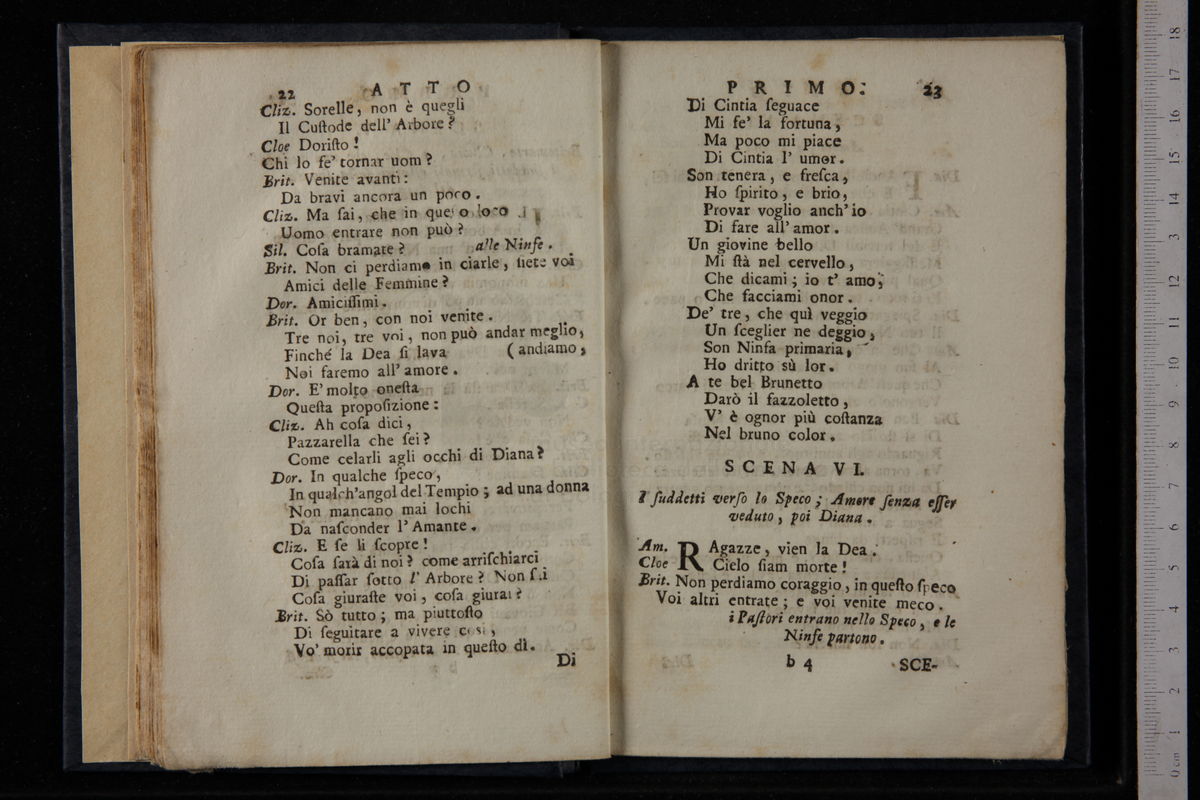 22 ATTO
Cliz. Sorelle, non è quegli
Il Cuſtode dell' Arbore?
Cloe Doriſto!
Chi lo fe' tornar uom?
Brit. Venite avanti:
Da bravi ancora un poco.
Cliz. Ma ſai, che in queſto loco
Uomo entrare non può?
Sil. Coſa bramate? alle Ninfe.
Brit. Non ci perdiamo in ciarle, ſiete voi
Amici delle Femmine?
Dor. Amiciſſimi.
Brit. Or ben, con noi venite.
Tre noi, tre voi, non può andar meglio,
Finché la Dea ſi lava (andiamo,
Noi faremo all' amore.
Dor. E' molto oneſta
Queſta propoſizione:
Cliz. Ah coſa dici,
Pazzarella che ſei?
Come celarli agli occhi di Diana?
Dor. In qualche ſpeco,
In qualch'angol del Tempio; ad una donna
Non mancano mai lochi
Da naſconder l' Amante.
Cliz. E ſe li ſcopre!
Coſa ſarà di noi? come arriſchiarci
Di paſſar ſotto l' Arbore? Non ſai
Coſa giuraſte voi, coſa giurai?
Brit. Sò tutto; ma piuttoſto
Di ſeguitare a vivere così,
Vo' morir accopata in queſto dì.
Di
PRIMO. 23
Di Cintia ſeguace
Mi fe' la fortuna,
Ma poco mi piace
Di Cintia l' umor.
Son tenera, e freſca,
Ho ſpirito, e brio,
Provar voglio anch' io
Di fare all' amor.
Un giovine bello
Mi ſtà nel cervello,
Che dicami; io t' amo;
Che facciami onor.
De' tre, che quì veggio
Un ſceglier ne deggio,
Son Ninfa primaria,
Ho dritto sù lor.
A te bel Brunetto
Darò il fazzoletto,
V' è ognor più coſtanza
Nel bruno color.
SCENA VI.
I ſuddetti verſo lo Speco; Amore ſenza eſſer
veduto, poi Diana.
Am. RAgazze, vien la Dea.
Cloe Cielo ſiam morte!
Brit. Non perdiamo coraggio, in queſto ſpeco
Voi altri entrate; e voi venite meco.
i Paſtori entrano nello Speco, e le
Ninfe partono.
b 4 SCE-
0 cm 1 2 3 4 5 6 7 8 9 10 11 12 13 14 15 16 17 18